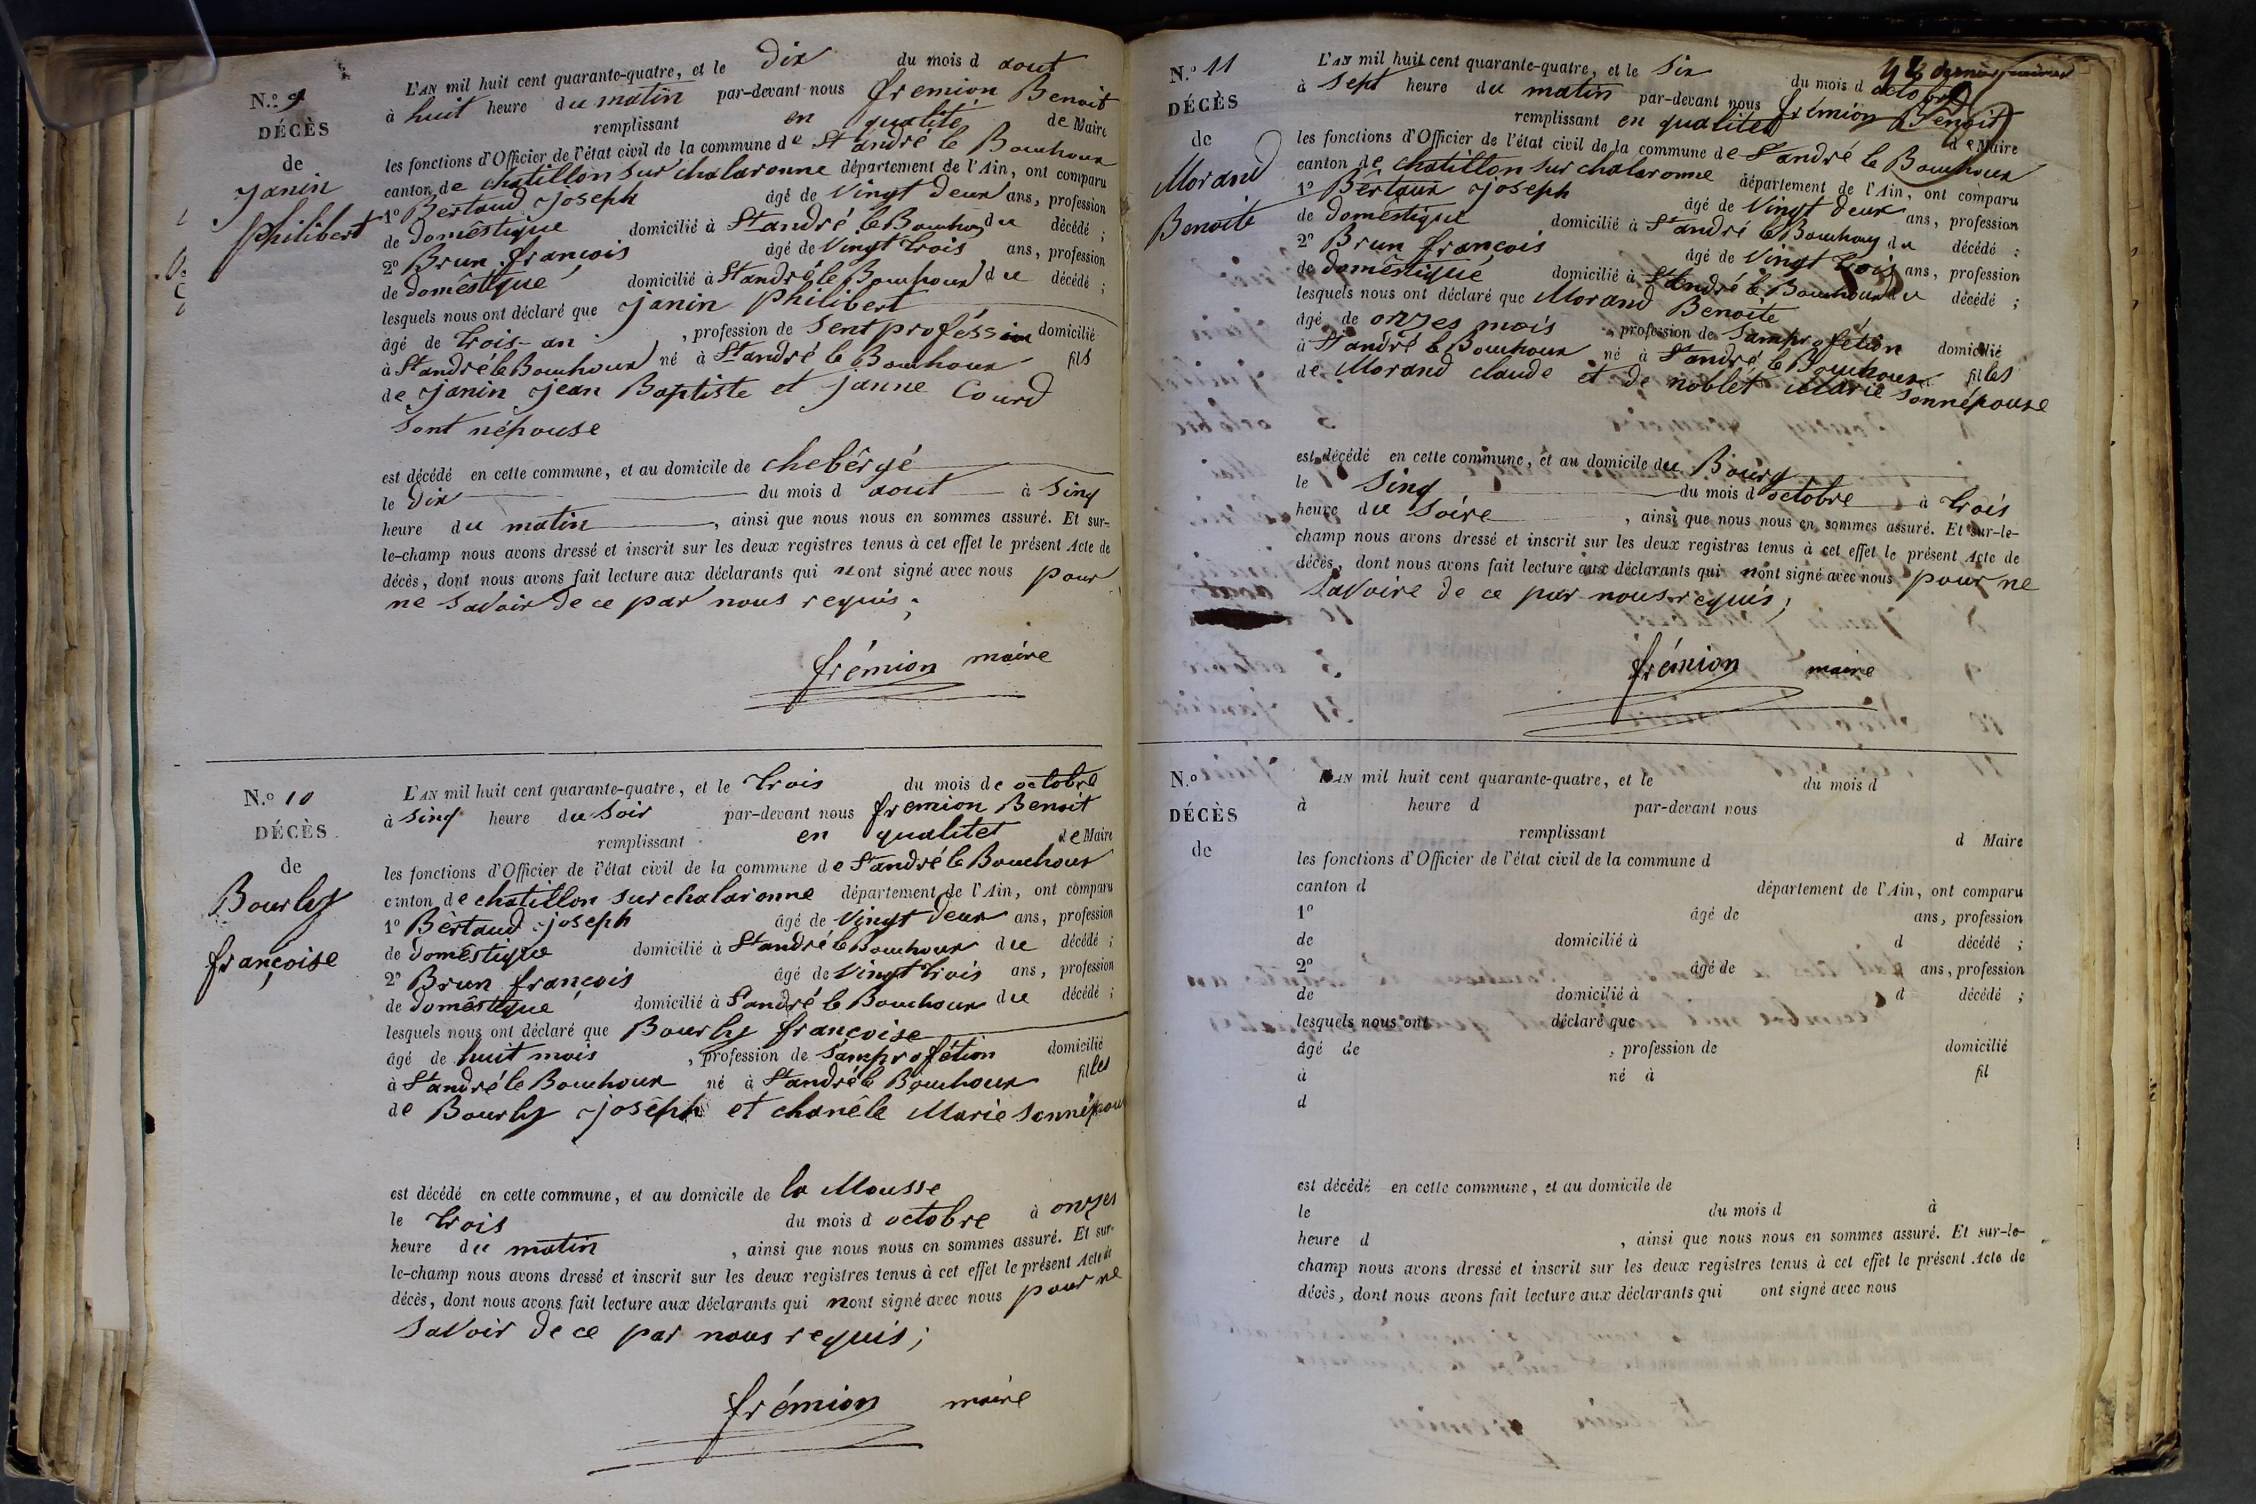 N.º 9
DÉCÈS
de
Janin
Philibert
L'AN mil huit cent quarante-quatre, et le dix du mois d aout
à huit heure du matin par-devant nous fremion Benoit
remplissant en qualité de Maire
les fonctions d'Officier de l'état civil de la commune de St andré le Bouchoux
canton de chatillon sur chalaronne département de l'Ain, ont comparu
1º Bertaud Joseph âgé de Vingt deux ans, profession
de domêstique domicilié à St andré le Bouchoux du décédé ;
2º Brun françois âgé de Vingt trois ans, profession
de domêstique domicilié à St andré le Bouchoux du décédé ;
lesquels nous ont déclaré que janin Philibert
âgé de trois-an , profession de Sentproféssion domicilié
à St andré le Bouchoux né à St andré le Bouchoux fils
de Janin Jean Baptiste et janne Courd
Sont népouse
est décédé en cette commune, et au domicile de chebêrgé
le dix du mois d aout à Sinq
heure du matin , ainsi que nous nous en sommes assuré. Et sur-
le-champ nous avons dressé et inscrit sur les deux registres tenus à cet effet le présent Acte de
décès, dont nous avons fait lecture aux déclarants qui nont signé avec nous pour
ne Savoir de ce par nous requis ;
frémion maire
N.º 10
DÉCÈS
de
Bourly
françoise
L'AN mil huit cent quarante-quatre, et le trois du mois de octobre
à sinq heure du Soir par-devant nous fremion Benoit
remplissant en qualitet de Maire
les fonctions d'Officier de l'état civil de la commune de St andré le Bouchoux
canton de chatillon sur chalaronne département de l'Ain, ont comparu
1º Bèrtaud joseph âgé de Vingt deux ans, profession
de domêstique domicilié à St andré le Bouchoux du décédé ;
2º Brun françois âgé de Vingt trois ans, profession
de domêstique domicilié à St andré le Bouchoux du décédé ;
lesquels nous ont déclaré que Bourly françoise
âgé de huit mois , profession de Samprofétion domicilié
à St andré le Bouchoux né à St andré le Bouchoux filles
de Bourly Joséph et chanêle Marie Sonnépou
est décédé en cette commune, et au domicile de la Mousse
le trois du mois d octobre à onzes
heure du matin , ainsi que nous nous en sommes assuré. Et sur-
le-champ nous avons dressé et inscrit sur les deux registres tenus à cet effet le présent Acte de
décès, dont nous avons fait lecture aux déclarants qui nont signé avec nous pour ne
Savoir de ce par nous requis ;
frémion maire
N.º 11
DÉCÈS
de
Morand
Benoite
L'AN mil huit cent quarante-quatre, et le Six du mois d octobre
à Sept heure du matin par-devant nous frémion Benoit
remplissant en qualitet de Maire
les fonctions d'Officier de l'état civil de la commune de St andré le Bouchoux
canton de chatillon sur chalaronne département de l'Ain, ont comparu
1º Bértaux Joseph âgé de Vingt deux ans, profession
de domêstique domicilié à St andré le Bouchoux du décédé ;
2º Brun françois âgé de Vingt trois ans, profession
de domêstique domicilié à St andré le Bouchoux du décédé ;
lesquels nous ont déclaré que Morand Benoite
âgé de onzes mois , profession de Samprofétion domicilié
à St andré le Bouchoux né à St andré le Bouchoux filles
de Morand claude et de noblet Marie Sonnépouse
est décédé en cette commune, et au domicile du Bourg
le Sinq du mois d octobre à trois
heure du Soire , ainsi que nous nous en sommes assuré. Et sur-le-
champ nous avons dressé et inscrit sur les deux registres tenus à cet effet le présent Acte de
décès, dont nous avons fait lecture aux déclarants qui nont signé avec nous pour ne
Savoire de ce par nous requis ;
frémion maire
N.º
DÉCÈS
de
L'AN mil huit cent quarante-quatre, et le du mois d
à heure d par-devant nous
remplissant d Maire
les fonctions d'Officier de l'état civil de la commune d
canton d département de l'Ain, ont comparu
1º âgé de ans, profession
de domicilié à d décédé ;
2º âgé de ans, profession
de domicilié à d décédé ;
lesquels nous ont déclaré que
âgé de , profession de domicilié
à né à fil
d
est décédé en cette commune, et au domicile de
le du mois d à
heure d , ainsi que nous nous en sommes assuré. Et sur-le-
champ nous avons dressé et inscrit sur les deux registres tenus à cet effet le présent Acte de
décès, dont nous avons fait lecture aux déclarants qui ont signé avec nous